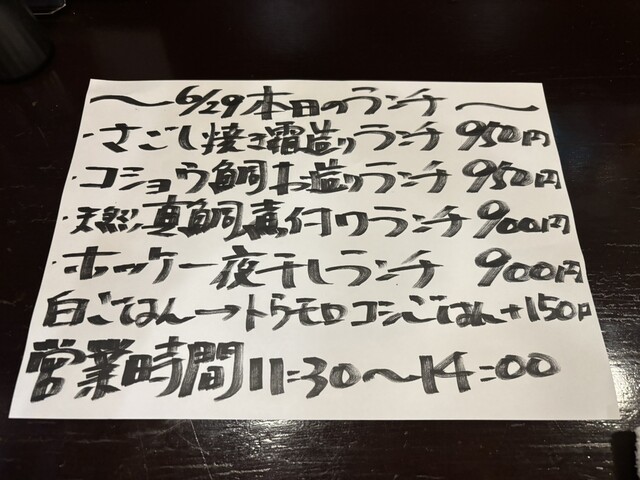 ～6/29本日のランチ～
・さごし焼き霜造りランチ 950円
・コショウ鯛お造りランチ 950円
・天然真鯛煮付けランチ 900円
・ホッケ一夜干しランチ 900円
白ごはん→トウモロコシごはん+150円
営業時間11:30～14:00